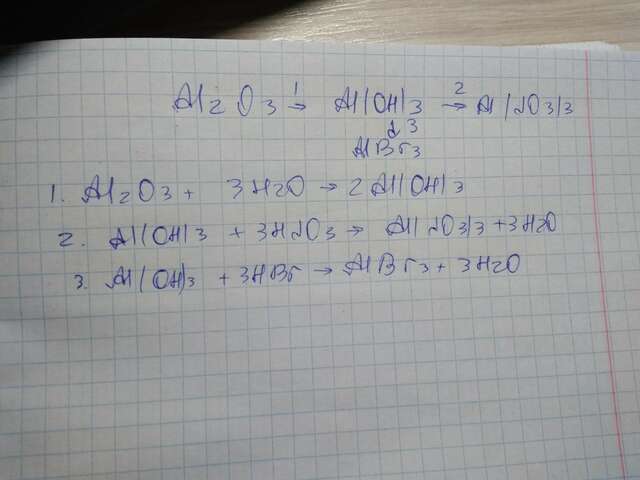 Al2O3 1→ Al(OH)3 2→ Al(NO3)3
↓ 3
AlBr3
1. Al2O3 + 3H2O → 2Al(OH)3
2. Al(OH)3 + 3HNO3 → Al(NO3)3 + 3H2O
3. Al(OH)3 + 3HBr → AlBr3 + 3H2O